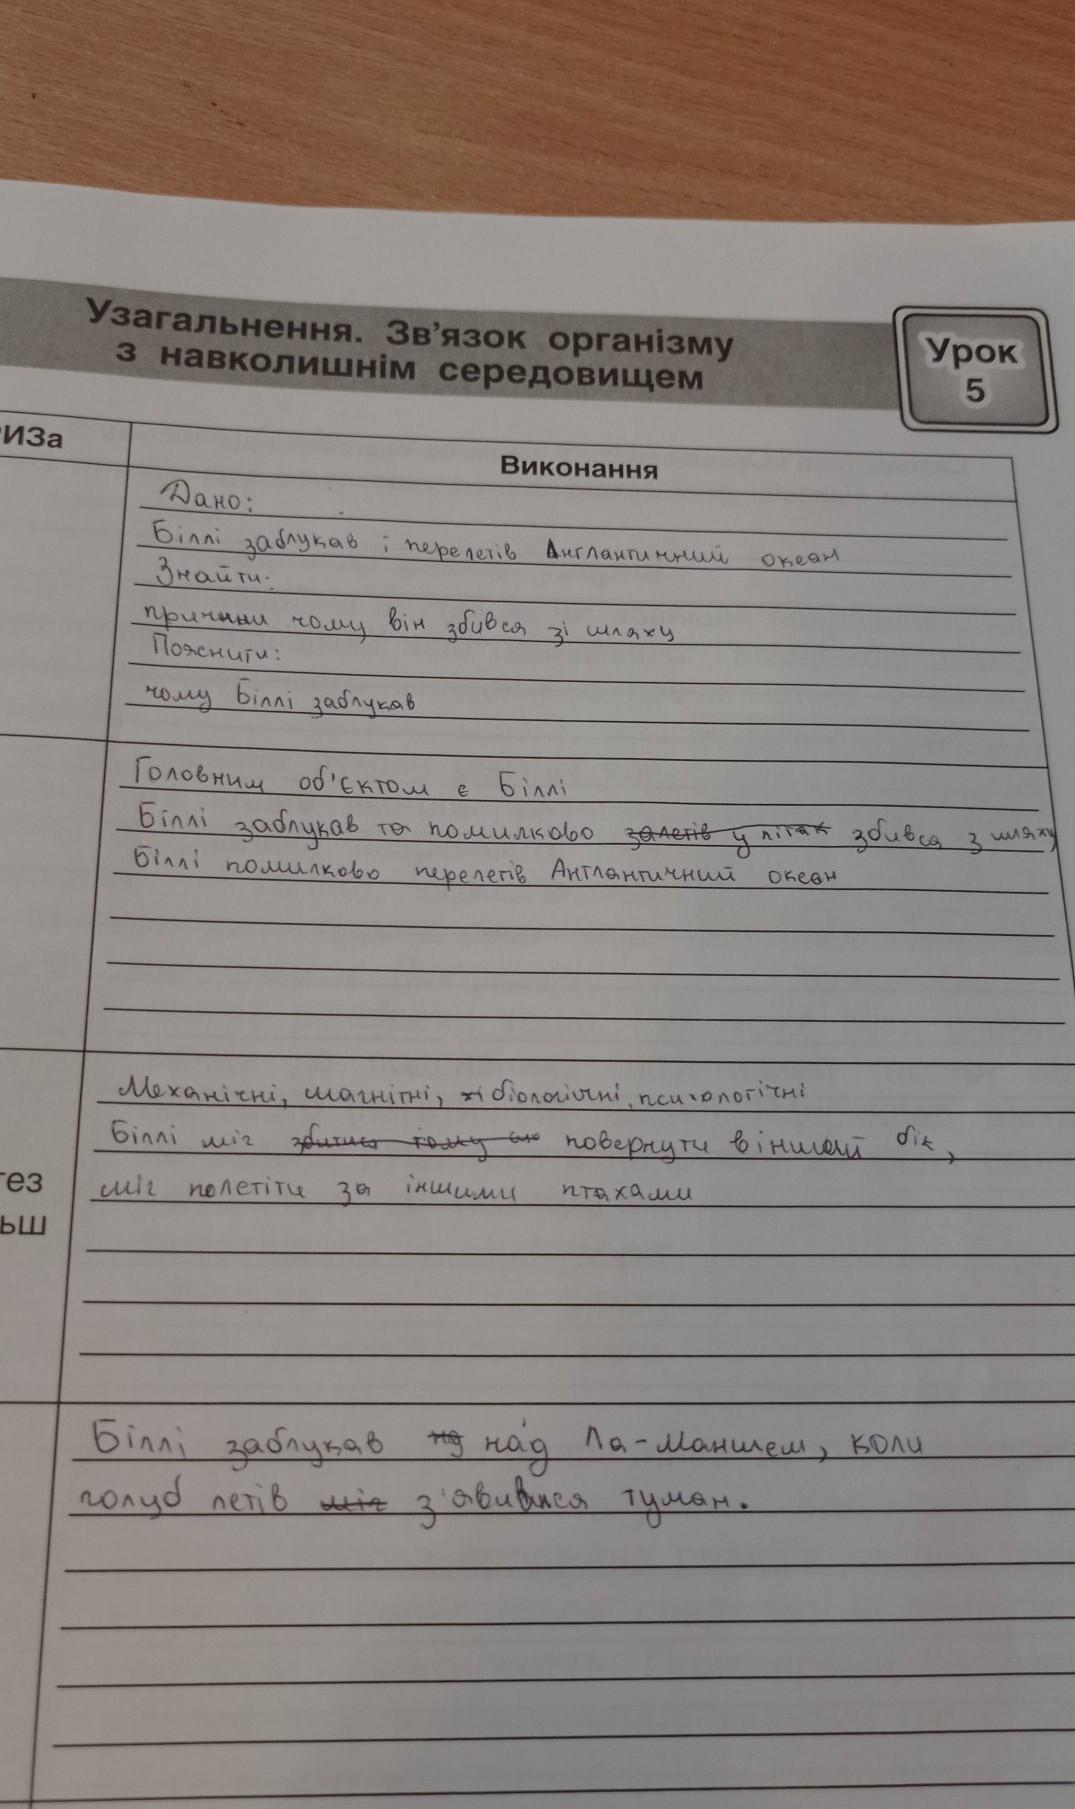 Узагальнення. Зв'язок організму
з навколишнім середовищем
Урок
5
ИЗа
Виконання
Дано:
Біллі заблукав і перелетів Англантичний океан
Знайти:
причини чому він збився зі шляху
Пояснити:
чому Біллі заблукав
Головним об'єктом є Біллі
Біллі заблукав та помилково залетів у літак збився з шляху
Біллі помилково перелетів Англантичний океан
Механічні, магнітні, хі біологічні, психологічні
Біллі міг збитися тому повернути в інший бік,
тез
міг полетіти за іншими птахами
ьш
Біллі заблукав над Ла-Маншем, коли
голуб летів міг з'явився туман.